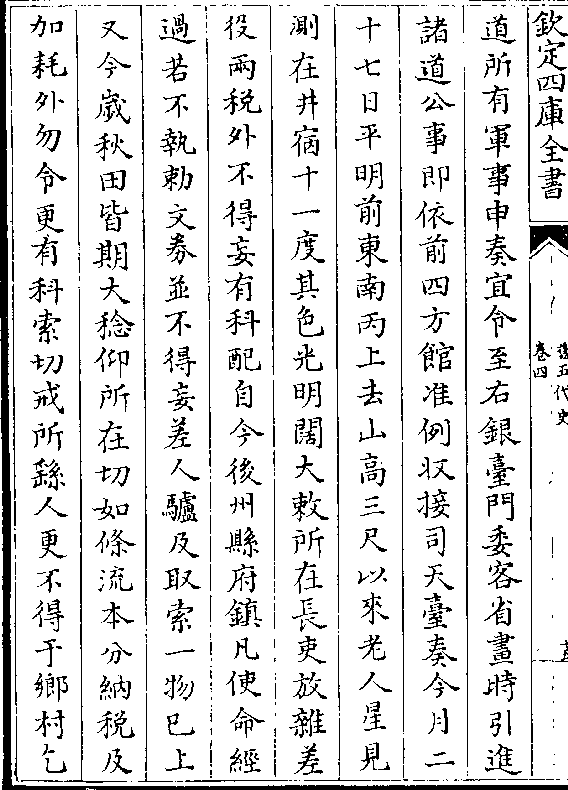 欽定四庫全書
舊五代史
卷四
道所有軍事申奏宜令至右銀臺門委客省畫時引進
諸道公事即依前四方館准例收接司天臺奏今月二
十七日平明前東南丙上去山高三尺以來老人星見
測在井宿十一度其色光明闊大敕所在長吏放雜差
役兩税外不得妄有科配自今後州縣府鎮凡使命經
過若不執勅文券並不得妄差人驢及取索一物已上
又今歲秋田皆期大稔仰所在切如條流本分納税及
加耗外勿令更有科索切戒所繇人更不得于鄉村乞